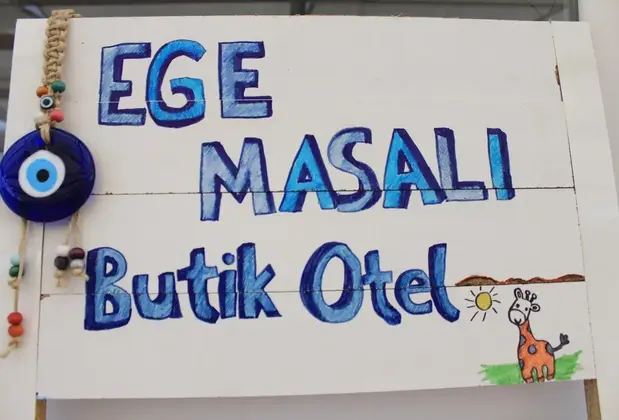 EGE
MASALI
Butik Otel